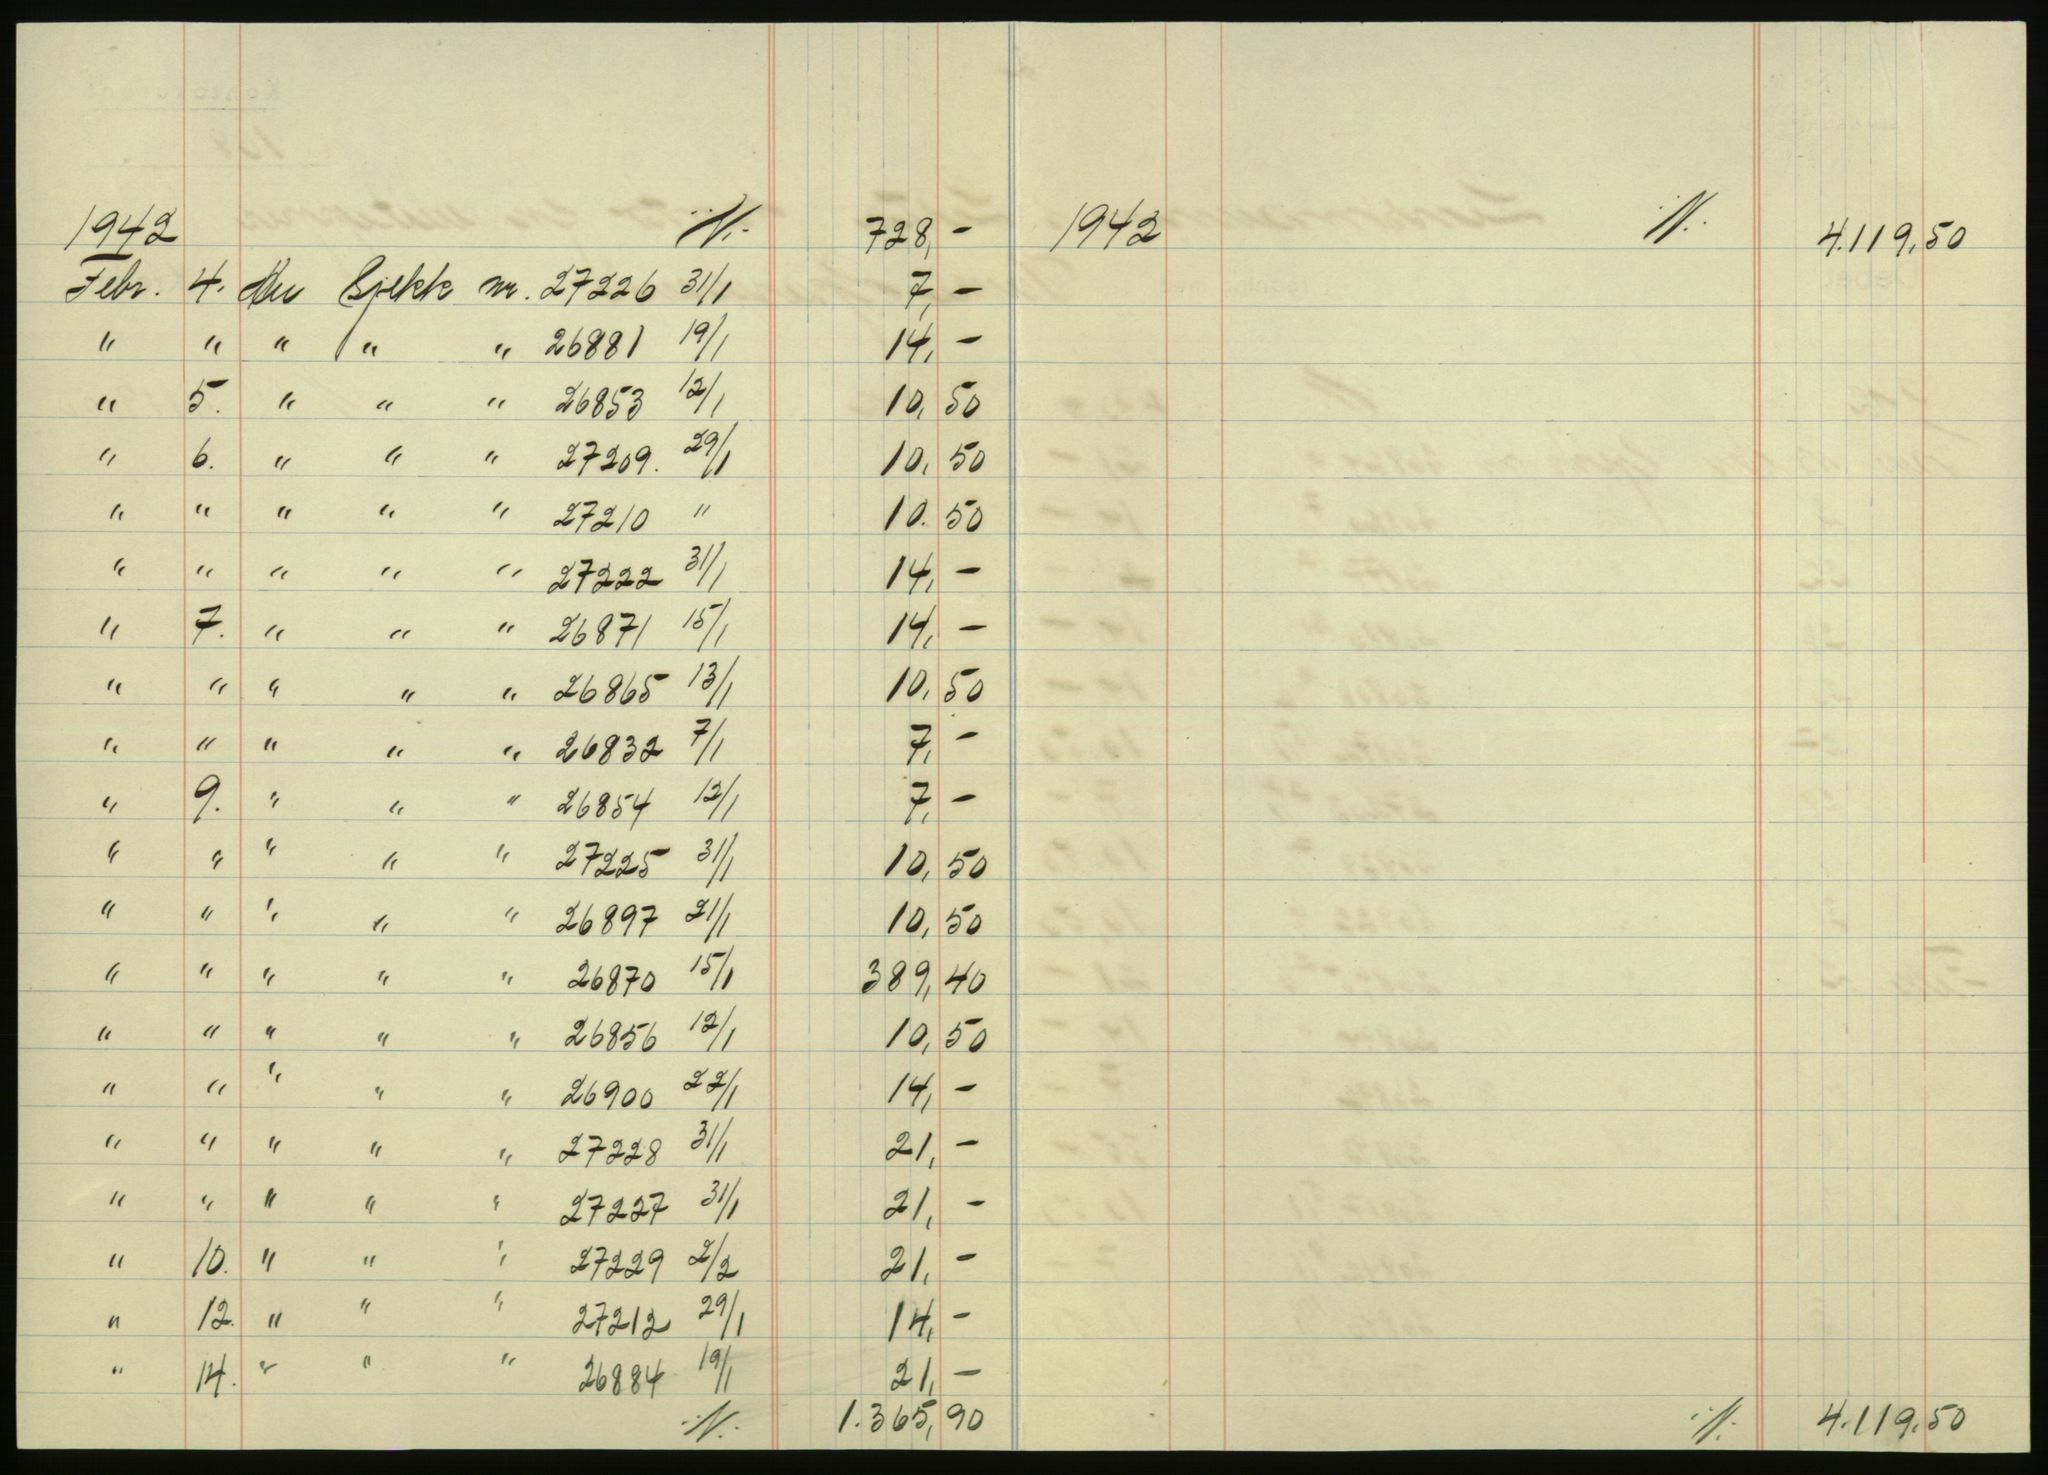 1942 ·/· 728,- 1942 ·/· 4.119,50
Febr. 4. An Sjekk nr. 27226 31/1 7,-
" " " " " 26881 19/1 14,-
" 5. " " " 26853 12/1 10,50
" 6. " " " 27209. 29/1 10,50
" " " " " 27210 " 10.50
" " " " " 27222 31/1 14,-
" 7. " " " 26871 15/1 14,-
" " " " " 26865 13/1 10,50
" " " " " 26832 7/1 7,-
" 9. " " " 26854 12/1 7,-
" " " " " 27225 31/1 10,50
" " " " " 26897 21/1 10,50
" " " " " 26870 15/1 389,40
" " " " " 26856 12/1 10,50
" " " " " 26900 22/1 14,-
" " " " " 27228 31/1 21,-
" " " " " 27227 31/1 21,-
" 10. " " " 27229 2/2 21,-
" 12. " " " 27212 29/1 14,-
" 14. " " " 26884 19/1 21,-
·/· 1.365,90 ·/· 4.119,50